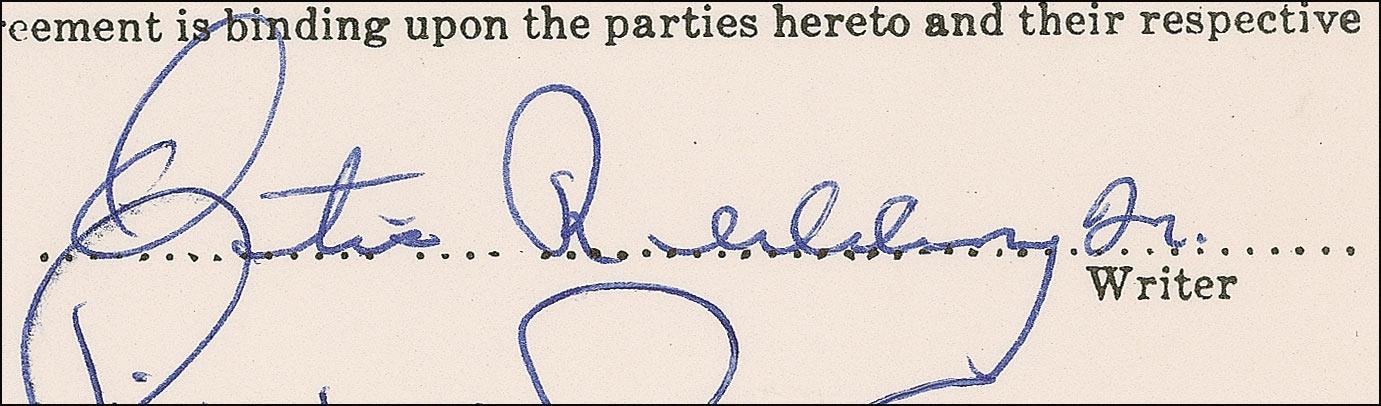 reement is binding upon the parties hereto and their respective
Otis Redding Jr.
Writer